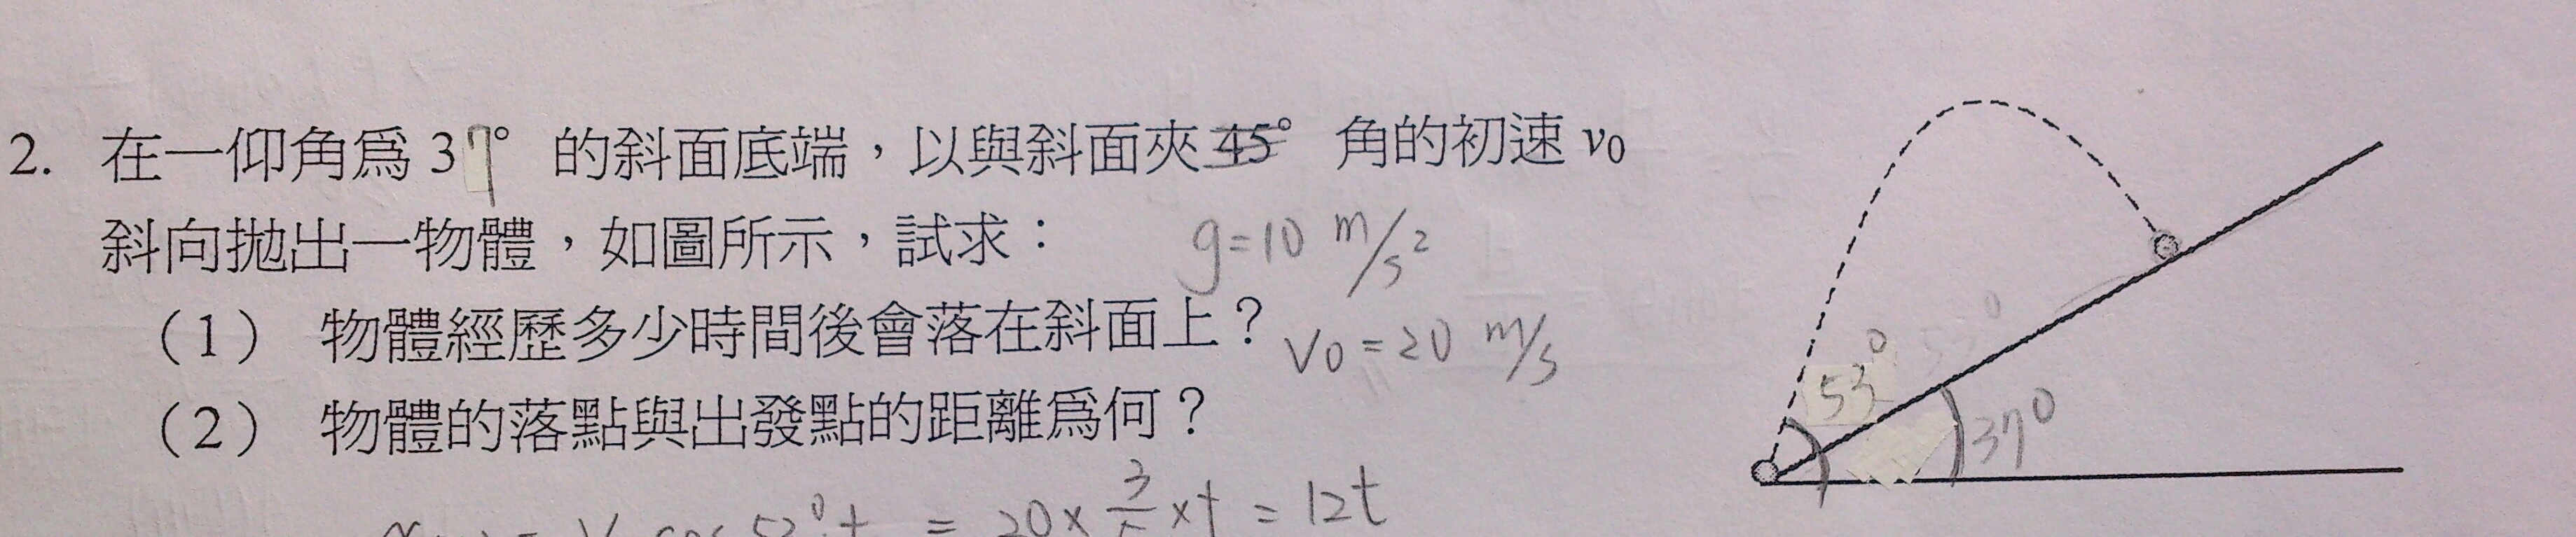 2. 在一仰角為 37° 的斜面底端，以與斜面夾 45° 角的初速 v0
斜向拋出一物體，如圖所示，試求：
g=10 m/s²
（1） 物體經歷多少時間後會落在斜面上？
V0=20 m/s
（2） 物體的落點與出發點的距離為何？
53°
37°
cos 53° t = 20× 3/5 ×t = 12t